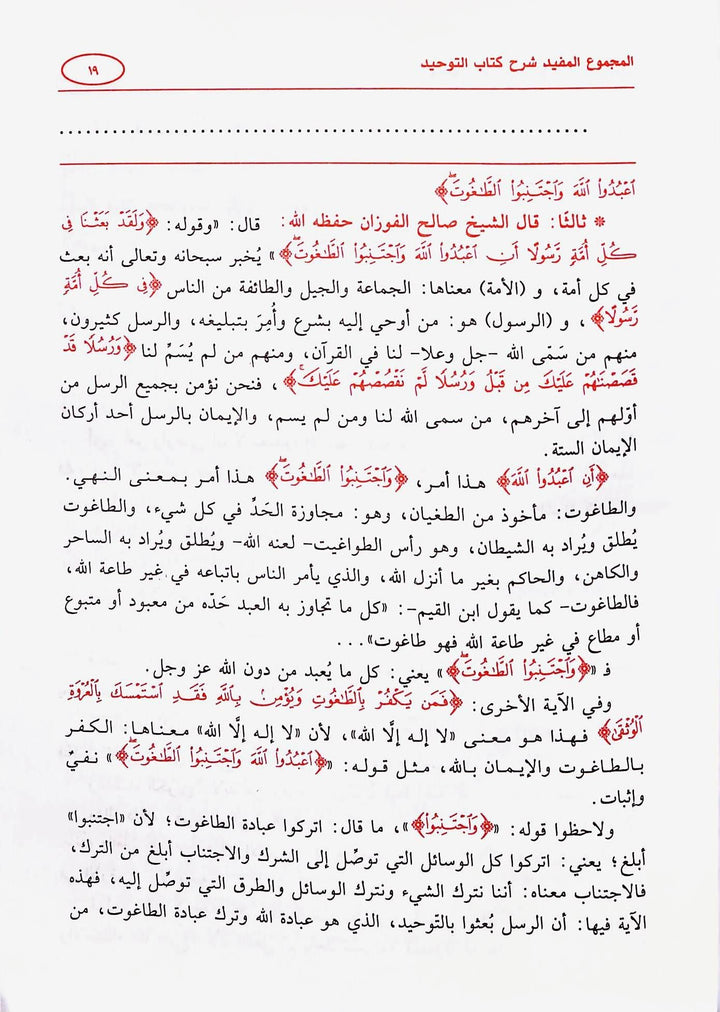 المجموع المفيد شرح كتاب التوحيد
١٩
ٱعْبُدُوا۟ ٱللَّهَ وَٱجْتَنِبُوا۟ ٱلطَّٰغُوتَۖ﴾
* ثالثًا: قال الشيخ صالح الفوزان حفظه الله: قال: «وقوله: ﴿وَلَقَدْ بَعَثْنَا فِى
كُلِّ أُمَّةٍ رَّسُولًا أَنِ ٱعْبُدُوا۟ ٱللَّهَ وَٱجْتَنِبُوا۟ ٱلطَّٰغُوتَۖ﴾» يُخبر سبحانه وتعالى أنه بعث
في كل أمة، و (الأمة) معناها: الجماعة والجيل والطائفة من الناس ﴿فِى كُلِّ أُمَّةٍ
رَّسُولًا﴾، و (الرسول) هو: من أوحي إليه بشرع وأُمِرَ بتبليغه، والرسل كثيرون،
منهم من سَمّى الله -جل وعلا- لنا في القرآن، ومنهم من لم يُسَمِّ لنا ﴿وَرُسُلًا قَدْ
قَصَصْنَٰهُمْ عَلَيْكَ مِن قَبْلُ وَرُسُلًا لَّمْ نَقْصُصْهُمْ عَلَيْكَۚ﴾، فنحن نؤمن بجميع الرسل من
أوّلهم إلى آخرهم، من سمى الله لنا ومن لم يسم، والإيمان بالرسل أحد أركان
الإيمان الستة.
﴿أَنِ ٱعْبُدُوا۟ ٱللَّهَ﴾ هذا أمر، ﴿وَٱجْتَنِبُوا۟ ٱلطَّٰغُوتَۖ﴾ هذا أمر بمعنى النهي.
والطاغوت: مأخوذ من الطغيان، وهو: مجاوزة الحَدِّ في كل شيء، والطاغوت
يُطلق ويُراد به الشيطان، وهو رأس الطواغيت- لعنه الله- ويُطلق ويُراد به الساحر
والكاهن، والحاكم بغير ما أنزل الله، والذي يأمر الناس باتباعه في غير طاعة الله،
فالطاغوت- كما يقول ابن القيم-: «كل ما تجاوز به العبد حَدّه من معبود أو متبوع
أو مطاع في غير طاعة الله فهو طاغوت»...
فـ «﴿وَٱجْتَنِبُوا۟ ٱلطَّٰغُوتَۖ﴾» يعني: كل ما يُعبد من دون الله عز وجل.
وفي الآية الأخرى: ﴿فَمَن يَكْفُرْ بِٱلطَّٰغُوتِ وَيُؤْمِنۢ بِٱللَّهِ فَقَدِ ٱسْتَمْسَكَ بِٱلْعُرْوَةِ
ٱلْوُثْقَىٰ﴾ فهذا هو معنى «لا إله إلَّا الله»، لأن «لا إله إلَّا الله» معناها: الكفر
بالطاغوت والإيمان بالله، مثل قوله: «﴿ٱعْبُدُوا۟ ٱللَّهَ وَٱجْتَنِبُوا۟ ٱلطَّٰغُوتَۖ﴾» نفيٌ
وإثبات.
ولاحظوا قوله: «﴿وَٱجْتَنِبُوا۟﴾»، ما قال: اتركوا عبادة الطاغوت؛ لأن «اجتنبوا»
أبلغ؛ يعني: اتركوا كل الوسائل التي توصِّل إلى الشرك والاجتناب أبلغ من الترك،
فالاجتناب معناه: أننا نترك الشيء ونترك الوسائل والطرق التي توصِّل إليه، فهذه
الآية فيها: أن الرسل بُعثوا بالتّوحيد، الذي هو عبادة الله وترك عبادة الطاغوت، من